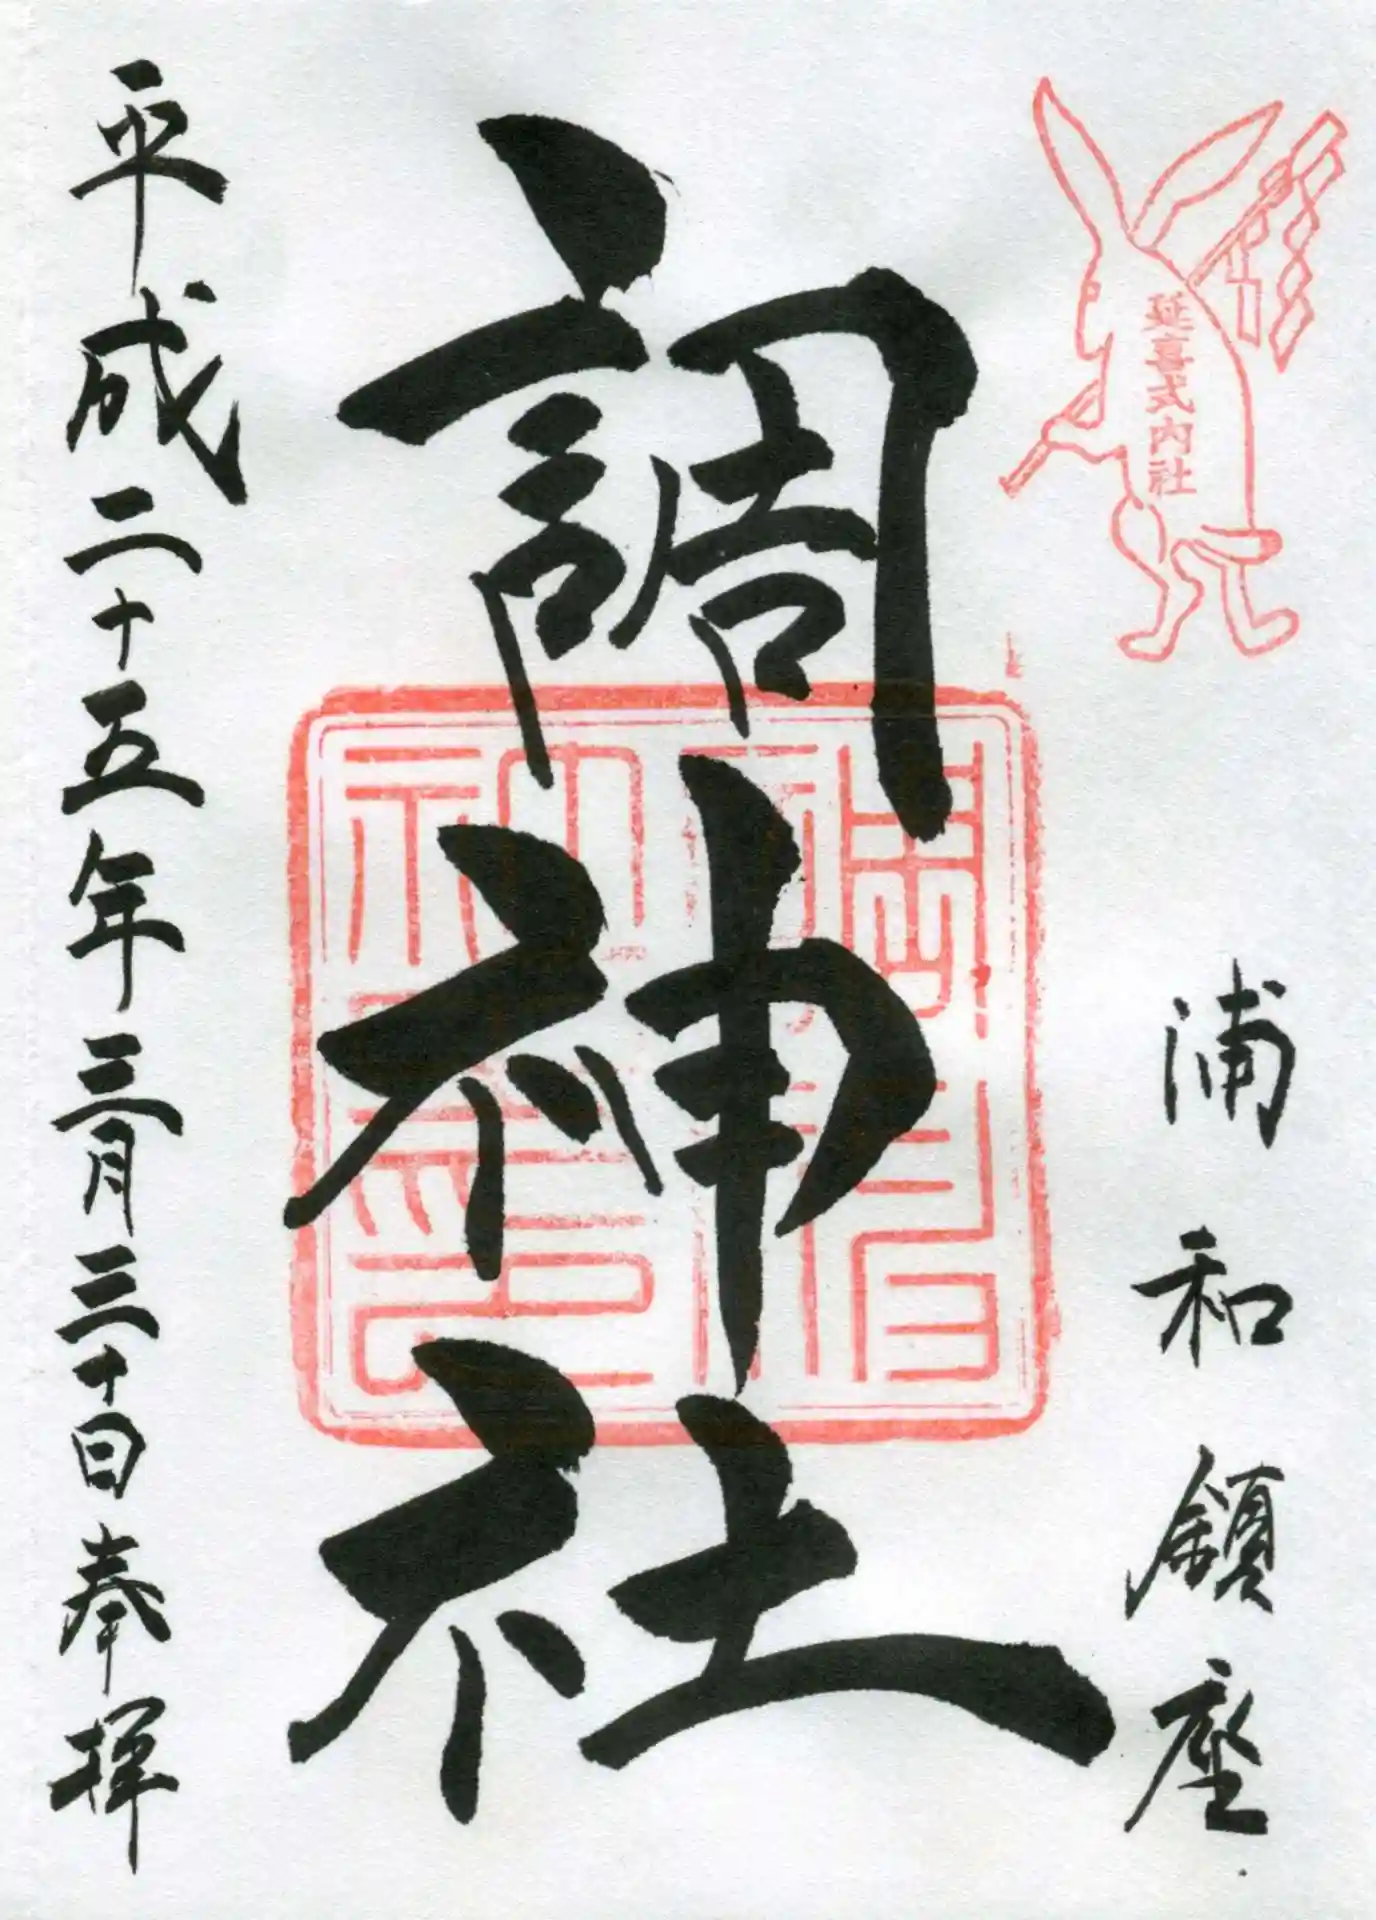 延喜式内社
浦和鎮座
調神社
平成二十五年三月三十日奉拝